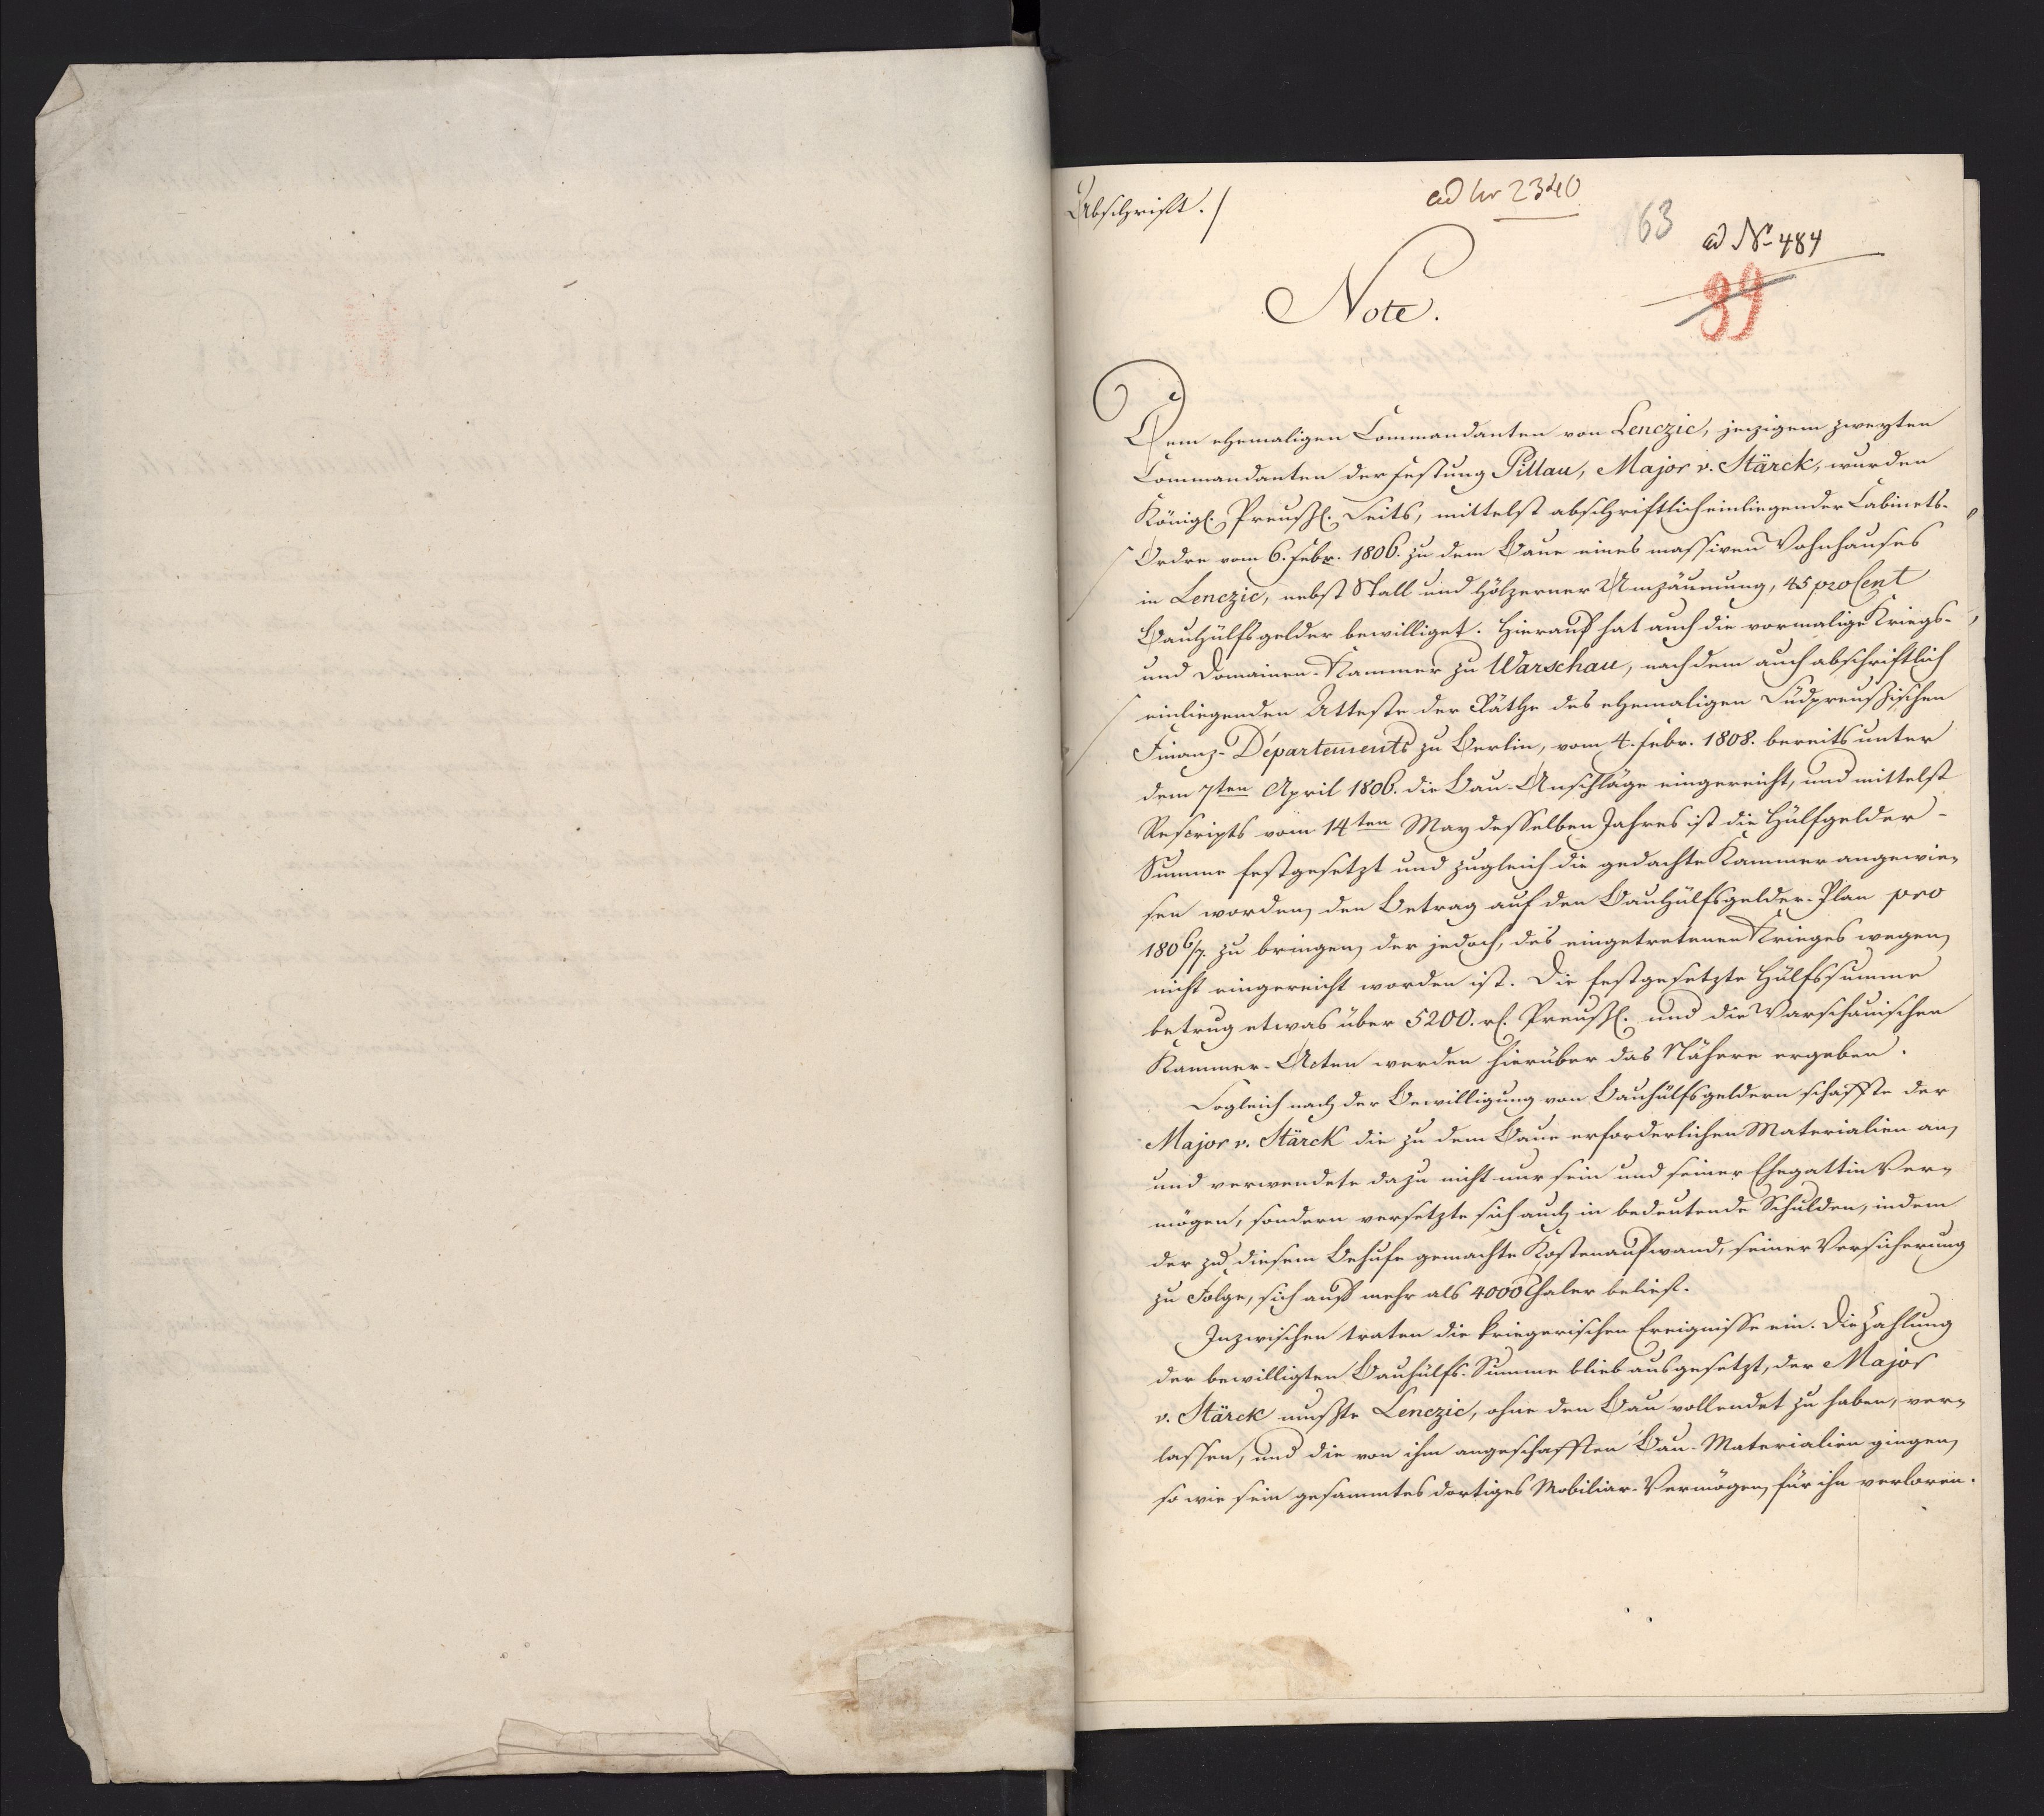 Abschrift./
ad Nr 2340
163
ad No 484
39
Note.
Dem ehemaligen Commandanten von Lenczic, jezigem zweyten
Commandanten der Festung Pillau, Major v. Stärck, wurden
Königl. Preußl. Seits, mittelst abschriftlich einliegender Cabinets-
Ordre vom 6. Febr. 1806. zu dem Baue eines massiven Wohnhauses
in Lenczic, nebst Stall und hölzerner Umzäunung, 45 proCent
Bauhülfsgelder bewilliget. Hierauf hat auch die vormalige Kriegs-
und Domainen-Kammer zu Warschau, nach dem auch abschriftlich
einliegenden Atteste der Räthe des ehemaligen Südpreußischen
Finanz-Départements zu Berlin, vom 4. Febr. 1808. bereits unter
dem 7ten April 1806. die Bau-Anschläge eingereicht, und mittelst
Rescripts vom 14ten May desselben Jahres ist die Hülfgelder-
Summe festgesetzt und zugleich die gedachte Kammer angewie-
sen worden, den Betrag auf den Bauhülfsgelder-Plan pro
1806/7. zu bringen, der jedoch, des eingetretenen Krieges wegen,
nicht eingereicht worden ist. Die festgesetzte Hülfssumme
betrug etwas über 5200. rl. Preußl. und die Warschauischen
Kammer-Acten werden hierüber das Nähere ergeben.
Sogleich nach der Bewilligung von Bauhülfsgeldern schaffte der
Major v. Stärck die zu dem Baue erforderlichen Materialien an,
und verwendete dazu nicht nur sein und seiner Ehegattin Ver-
mögen, sondern versetzte sich auch in bedeutende Schulden, indem
der zu diesem Behufe gemachte Kostenaufwand, seiner Versicherung
zu Folge, sich auf mehr als 4000 Thaler belief.
Inzwischen traten die kriegerischen Ereignisse ein. Die Zahlung
der bewilligten Bauhülfs-Summe blieb ausgesetzt, der Major
v. Stärck mußte Lenczic, ohne den Bau vollendet zu haben, ver-
lassen, und die von ihm angeschafften Bau-Materialien gingen,
so wie sein gesammtes dortiges Mobiliar-Vermögen, für ihn verloren.